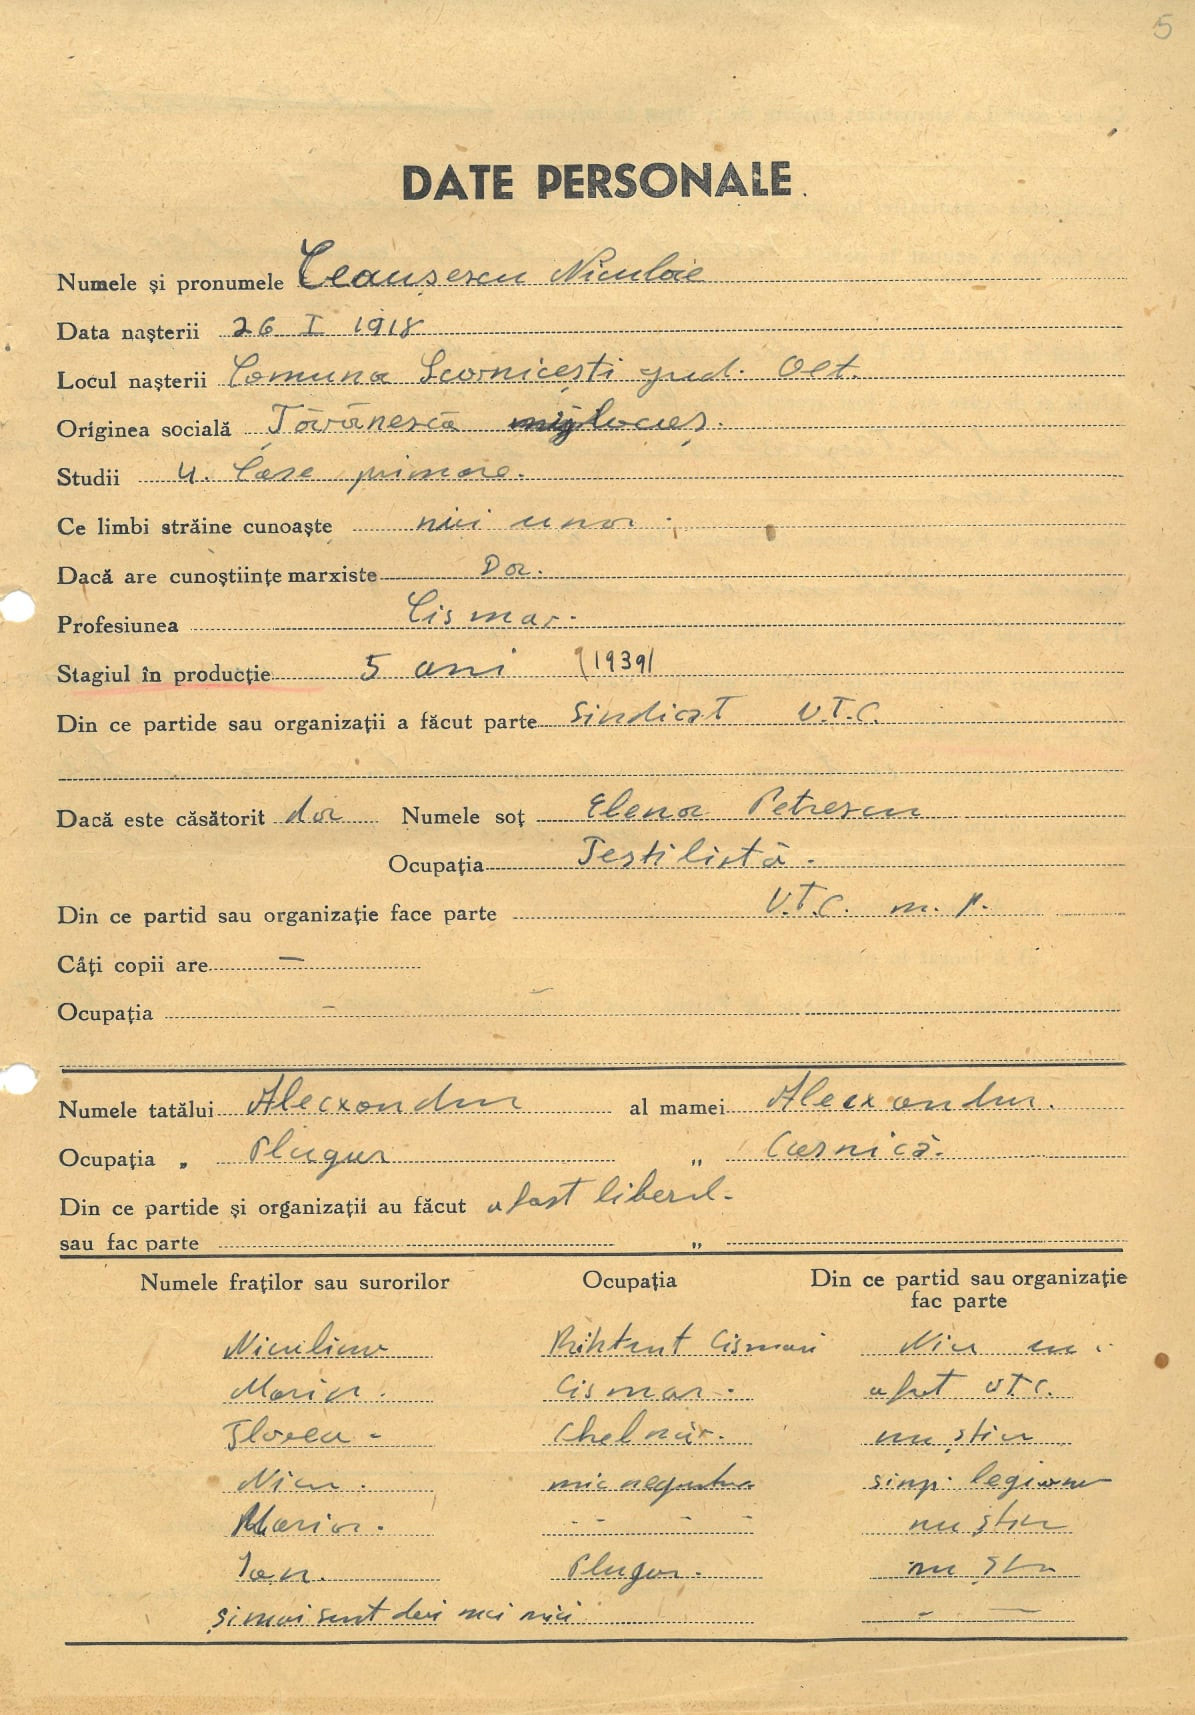 5
DATE PERSONALE
Numele și pronumele Ceaușescu Niculaie
Data nașterii 26 I 1918
Locul nașterii Comuna Scornicești jud. Olt.
Originea socială Țărănescă mijlocaș.
Studii 4. Clase primare.
Ce limbi străine cunoaște nici una.
Dacă are cunoștiințe marxiste Da.
Profesiunea Cismar.
Stagiul în producție 5 ani (1939)
Din ce partide sau organizații a făcut parte Sindicat U.T.C.
Dacă este căsătorit da Numele soț Elena Petrescu
Ocupația Testilistă.
Din ce partid sau organizație face parte U.T.C. m. p.
Câți copii are —
Ocupația –
Numele tatălui Alecxandru al mamei Alecxandru.
Ocupația „ Plugar „ Casnică.
Din ce partide și organizații au făcut a fost liberal.
sau fac parte „
Numele fraților sau surorilor Ocupația Din ce partid sau organizație
fac parte
Niculina Cismari
Maria. Cismar. a fost UTC.
Florea - Chelnăr. nu știu
Nicu. mic negustor simp. legionar
Maria. - - - - nu știu
Ion. Plugar. nu știu
și mai sunt mici - —